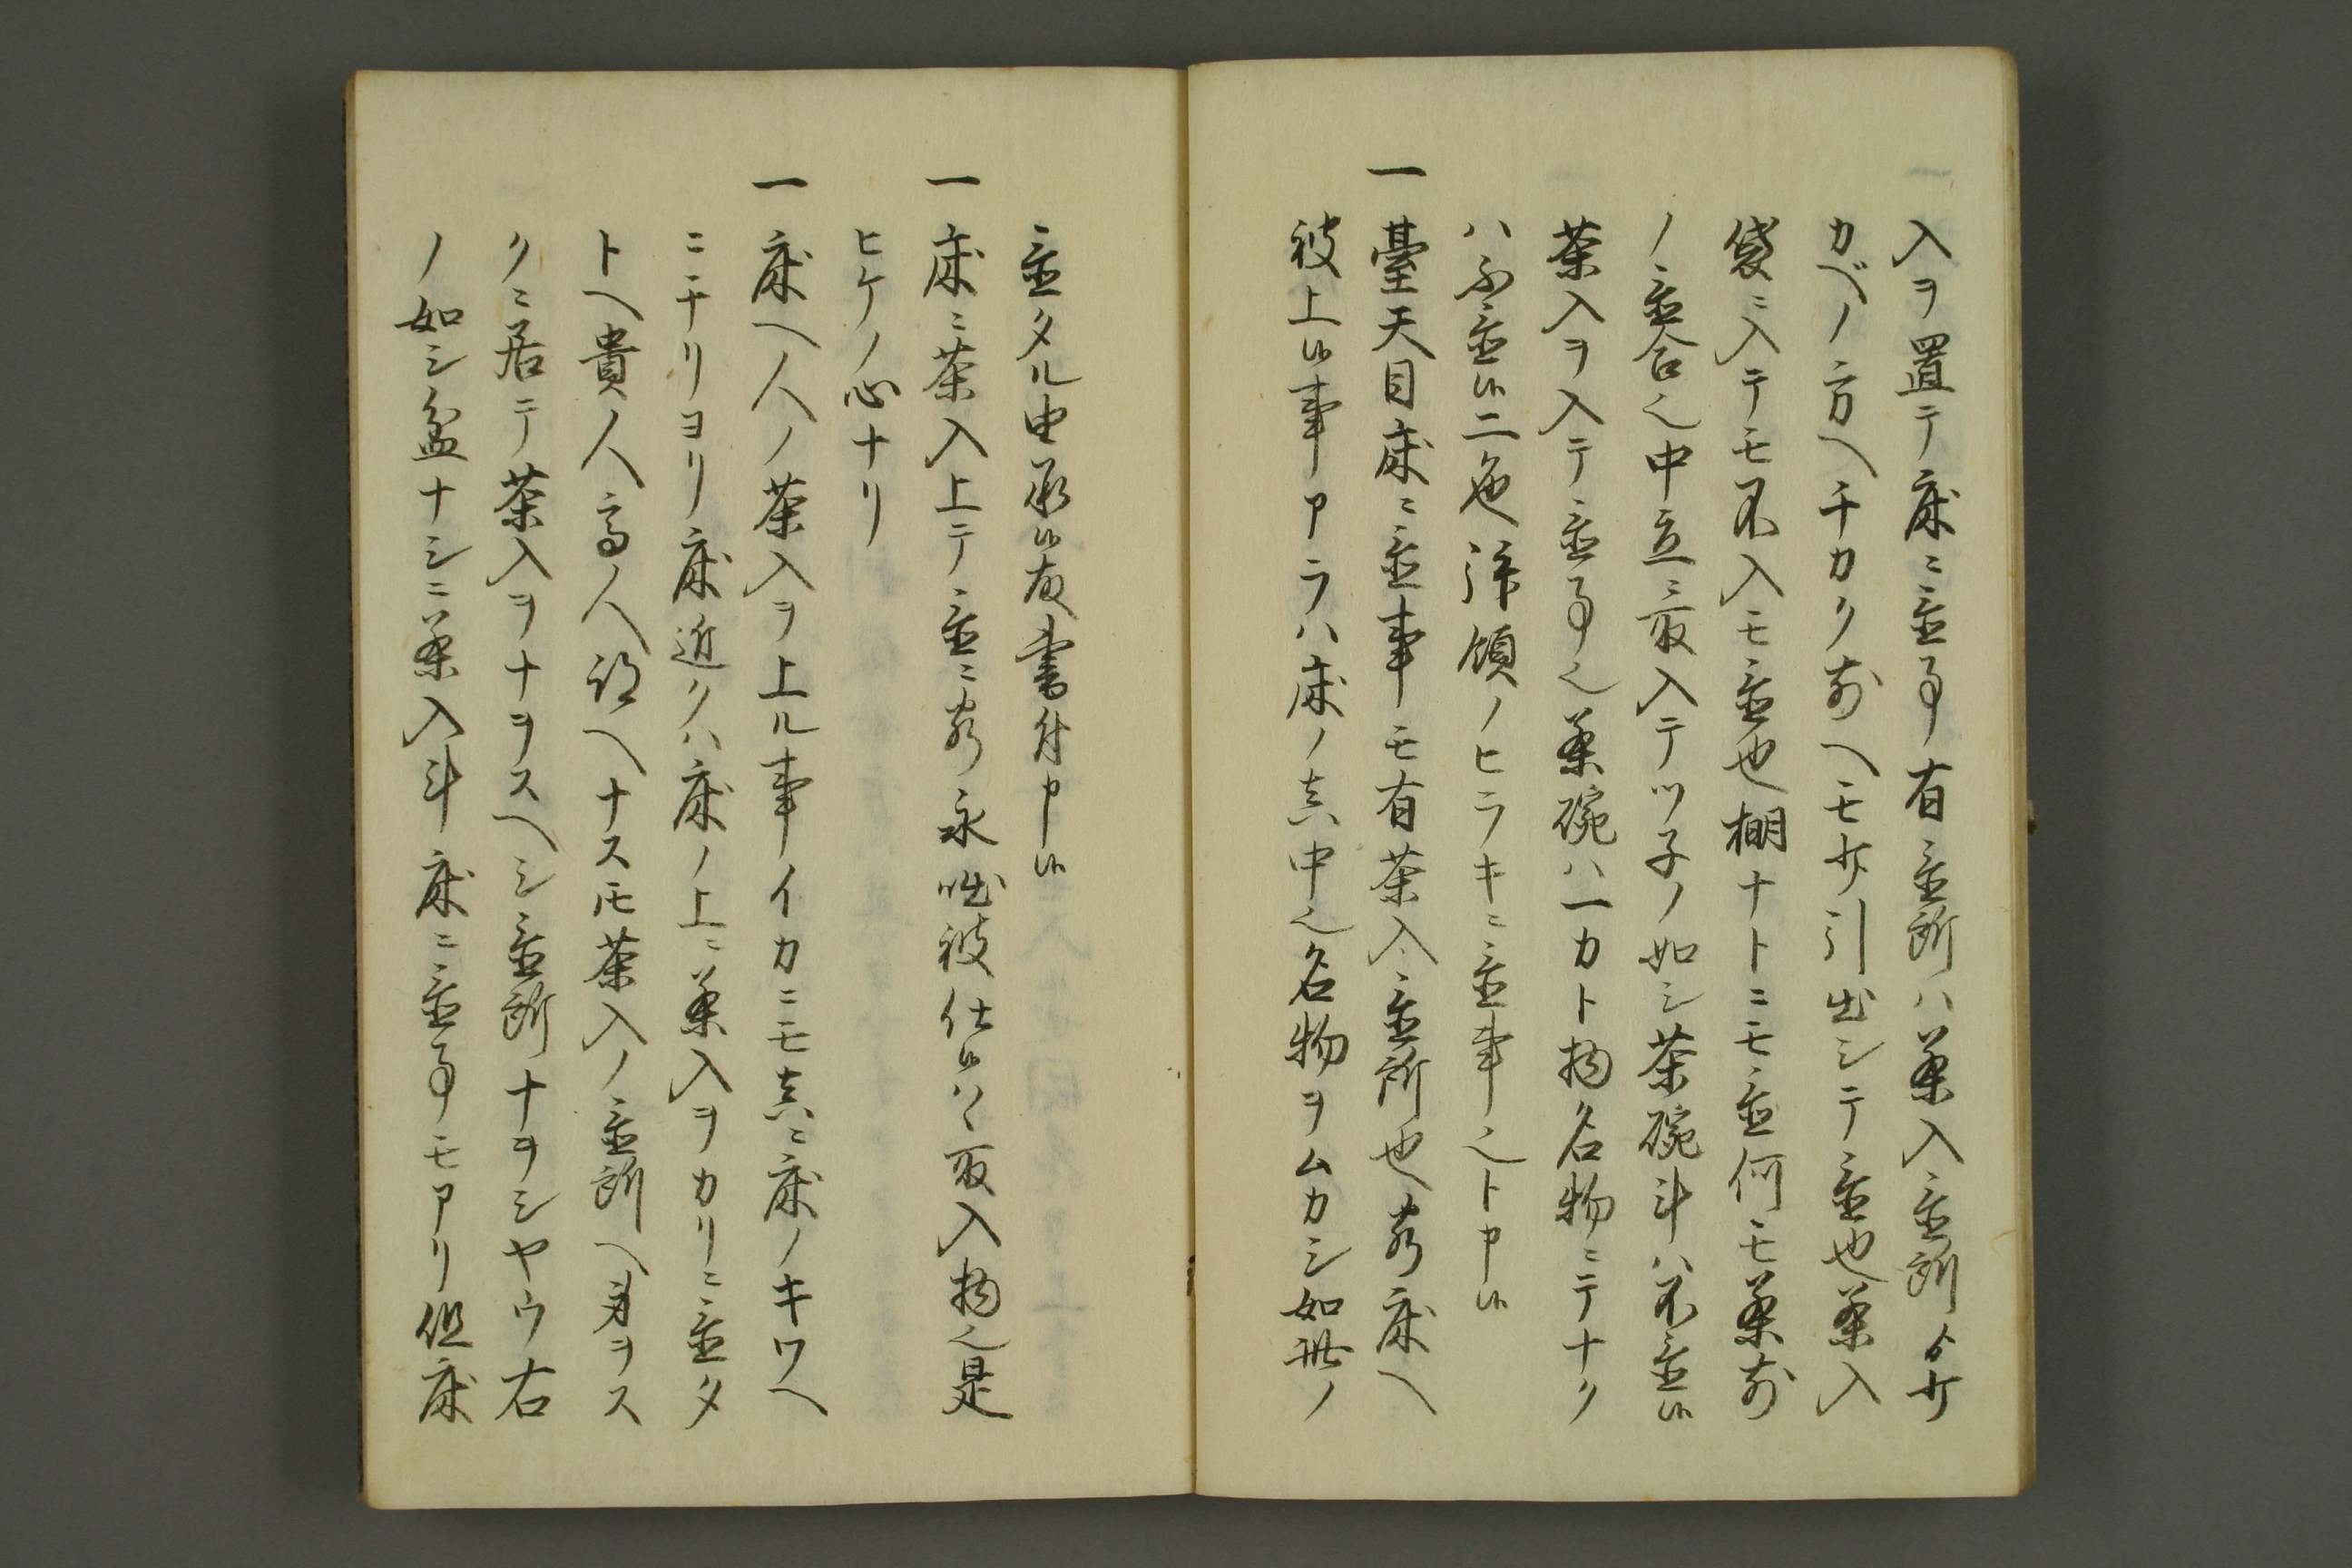 入ヲ置テ床ニ並事有並所ハ茶入並所ゟ少
カベノ方ヘチカク前ヘモ少引出シテ並也茶入
袋ニ入テモ不入モ並也棚ナトニモ並何モ茶前
ノ並合也中立ニ取入テツ子ノ如シ茶碗斗ハ不並候
茶入ヲ入テ並事也茶碗ハ一カト拘名物ニテナク
ハ不並候二色 飾傾ノヒラキニ並事也ト申候
一臺天目床ニ並事モ有茶入ニ並所也客床ヘ
被上候事アラハ床ノ真中也名物ヲムカシ如此ノ
並タル由承候故書付申候
一床ニ茶入上テ並ニ客永咄被仕候ハヽ取入物也是
ヒケノ心ナリ
一床ヘ人ノ茶入ヲ上ル事イカニモ真ニ床ノキワヘ
ニチリヨリ床近クハ床ノ上ニ茶入ヲカリニ並タ
トヘ貴人高人設ヘナスモ茶入ノ並所ヘ身ヲス
クニ居テ茶入ヲナヲスヘシ並所ナヲシヤウ右
ノ如シ盆ナシニ茶入斗床ニ並事モアリ但床